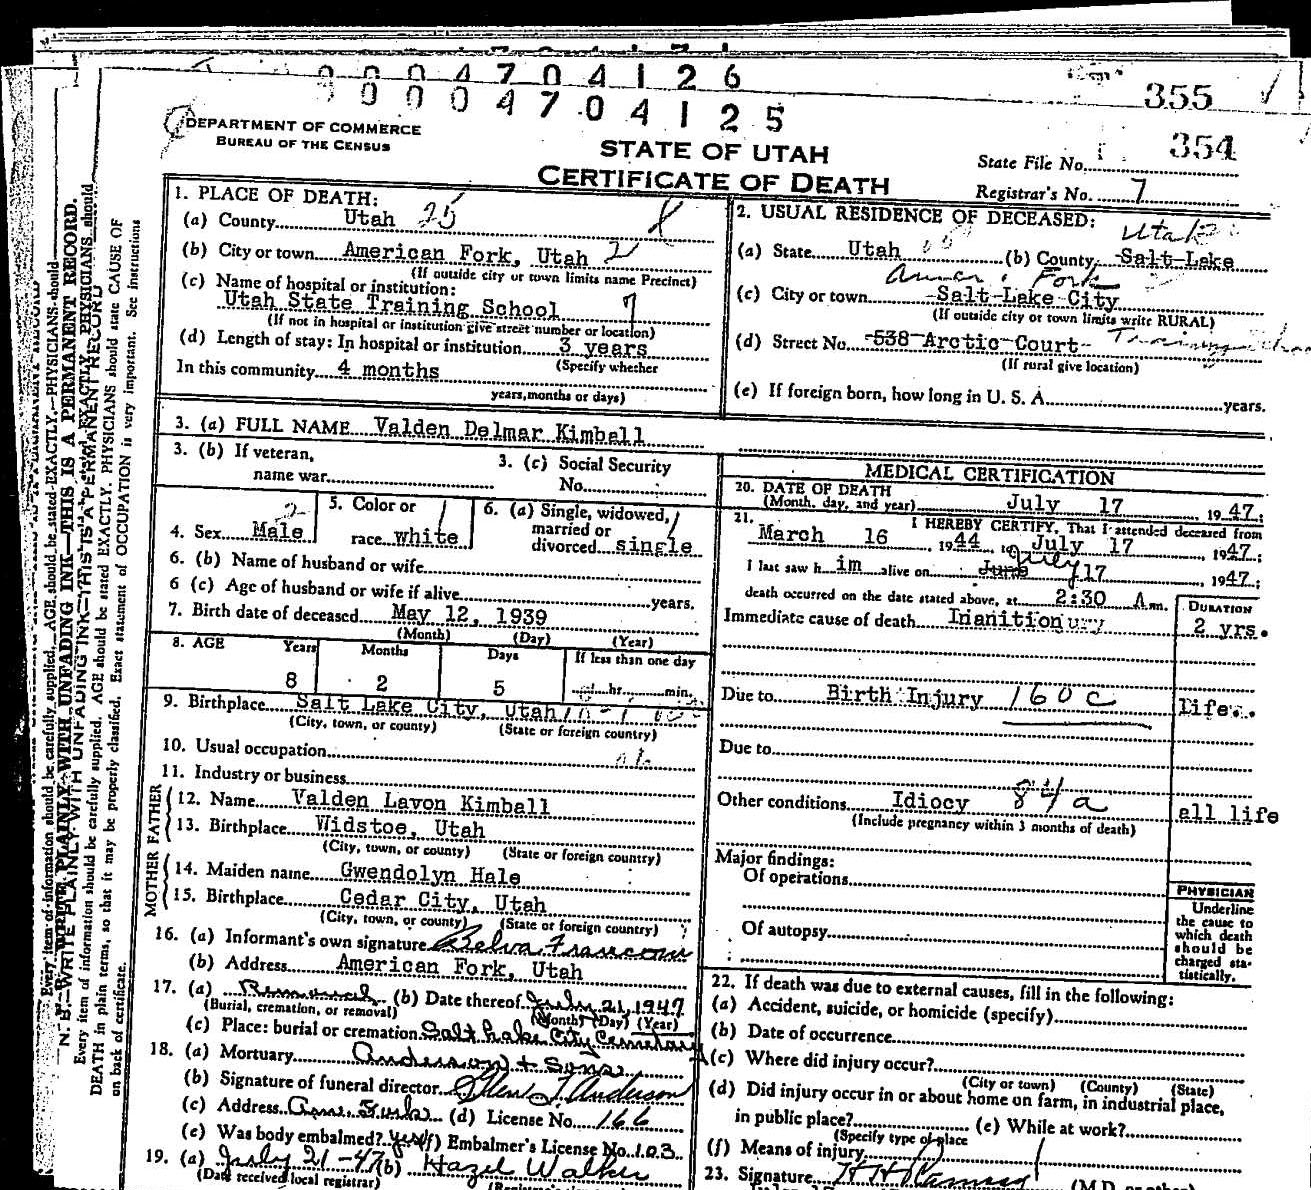 0 0 0 4 7 0 4 1 2 6
0 0 0 4 7 0 4 1 2 5
355
354
DEPARTMENT OF COMMERCE
BUREAU OF THE CENSUS
STATE OF UTAH
CERTIFICATE OF DEATH
State File No.
Registrar's No. 7
1. PLACE OF DEATH:
(a) County Utah 25
(b) City or town American Fork, Utah 2
(If outside city or town limits name Precinct)
(c) Name of hospital or institution:
Utah State Training School 7
(If not in hospital or institution give street number or location)
(d) Length of stay: In hospital or institution 3 years
(Specify whether
In this community 4 months
years, months or days)
2. USUAL RESIDENCE OF DECEASED:
Utah
(a) State Utah (b) County Salt Lake
Amer. Fork
(c) City or town Salt Lake City
(If outside city or town limits write RURAL)
(d) Street No. 538 Arctic Court Training
(If rural give location)
(e) If foreign born, how long in U. S. A. years.
3. (a) FULL NAME Valden Delmar Kimball
3. (b) If veteran,
name war
3. (c) Social Security
No.
4. Sex Male 2
5. Color or
race white 1
6. (a) Single, widowed,
married or
divorced single 1
6. (b) Name of husband or wife
6 (c) Age of husband or wife if alive years.
7. Birth date of deceased May 12, 1939
(Month) (Day) (Year)
8. AGE Years Months Days If less than one day
8 2 5 hr. min.
9. Birthplace Salt Lake City, Utah
(City, town, or county) (State or foreign country)
10. Usual occupation
11. Industry or business
FATHER
12. Name Valden Lavon Kimball
13. Birthplace Widstoe, Utah
(City, town, or county) (State or foreign country)
MOTHER
14. Maiden name Gwendolyn Hale
15. Birthplace Cedar City, Utah
(City, town, or county) (State or foreign country)
16. (a) Informant's own signature Belva Francom
(b) Address American Fork, Utah
17. (a) Removal (b) Date thereof July 21, 1947
(Burial, cremation, or removal) (Month) (Day) (Year)
(c) Place: burial or cremation Salt Lake City Cemetary
18. (a) Mortuary Anderson & Sons
(b) Signature of funeral director Glen J Anderson
(c) Address Am. Fork (d) License No. 166
(e) Was body embalmed? yes (f) Embalmer's License No. 103
19. (a) July 21-47 (b) Hazel Walker
(Date received local registrar)
MEDICAL CERTIFICATION
20. DATE OF DEATH
(Month, day, and year) July 17 1947;
21. I HEREBY CERTIFY, That I attended deceased from
March 16, 1944 to July 17, 1947;
July
I last saw him alive on June 17, 1947;
death occurred on the date stated above, at 2:30 A m.
DURATION
Immediate cause of death Inanition 2 yrs.
Due to Birth Injury 160c life.
Due to
Other conditions Idiocy 84a all life
(Include pregnancy within 3 months of death)
Major findings:
Of operations
Of autopsy
PHYSICIAN
Underline
the cause to
which death
should be
charged sta-
tistically.
22. If death was due to external causes, fill in the following:
(a) Accident, suicide, or homicide (specify)
(b) Date of occurrence
(c) Where did injury occur?
(City or town) (County) (State)
(d) Did injury occur in or about home on farm, in industrial place,
in public place? (e) While at work?
(Specify type of place
(f) Means of injury
23. Signature
N. B.—WRITE PLAINLY WITH UNFADING INK—THIS IS A PERMANENT RECORD.
Every item of information should be carefully supplied. AGE should be stated EXACTLY. PHYSICIANS should state CAUSE OF
DEATH in plain terms, so that it may be properly classified. Exact statement of OCCUPATION is very important. See instructions
on back of certificate.